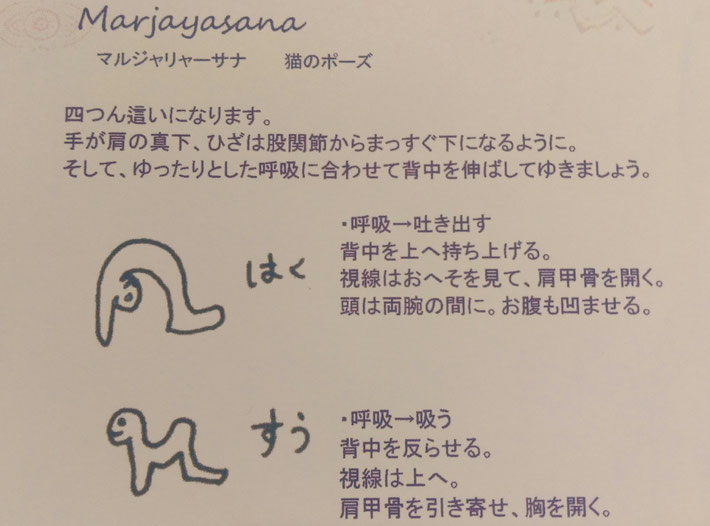 Marjayasana
マルジャリャーサナ　　猫のポーズ
四つん這いになります。
手が肩の真下、ひざは股関節からまっすぐ下になるように。
そして、ゆったりとした呼吸に合わせて背中を伸ばしてゆきましょう。
はく
・呼吸→吐き出す
背中を上へ持ち上げる。
視線はおへそを見て、肩甲骨を開く。
頭は両腕の間に。お腹も凹ませる。
すう
・呼吸→吸う
背中を反らせる。
視線は上へ。
肩甲骨を引き寄せ、胸を開く。